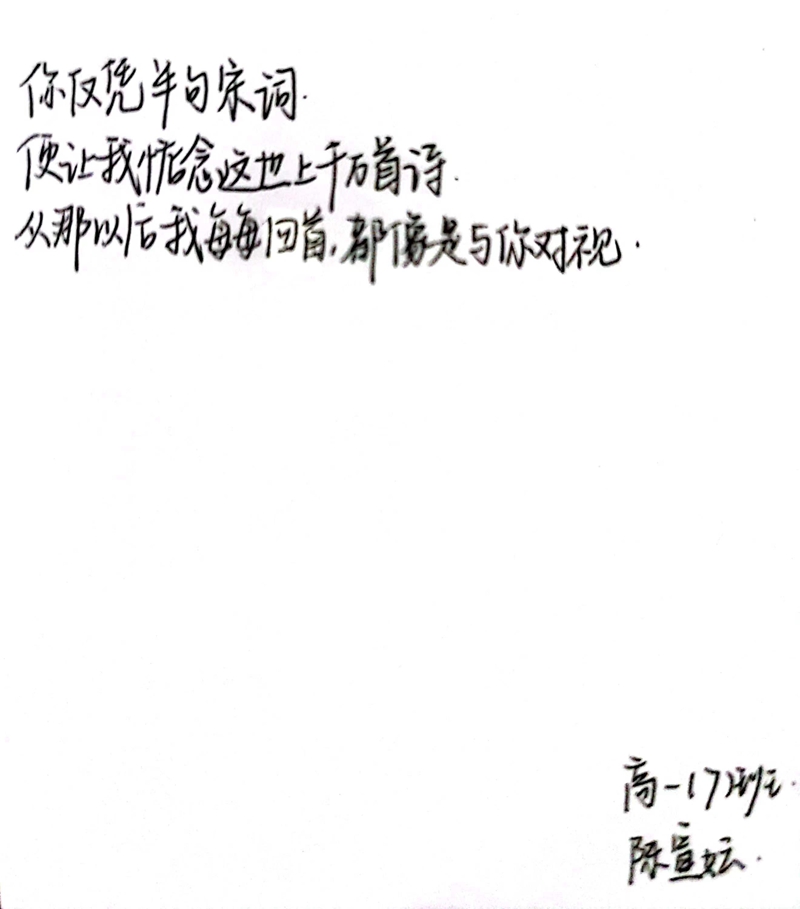 你仅凭半句宋词.
便让我惦念这世上千万首诗.
从那以后我每每回首,都像是与你对视.
高一(7)班.
陈宣妘.